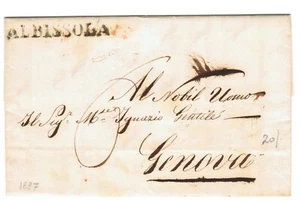 ALBISSOLA
Al Nobil Uomo
Il Sig.r M.se Ignazio Gentile
Genova
20/
1837